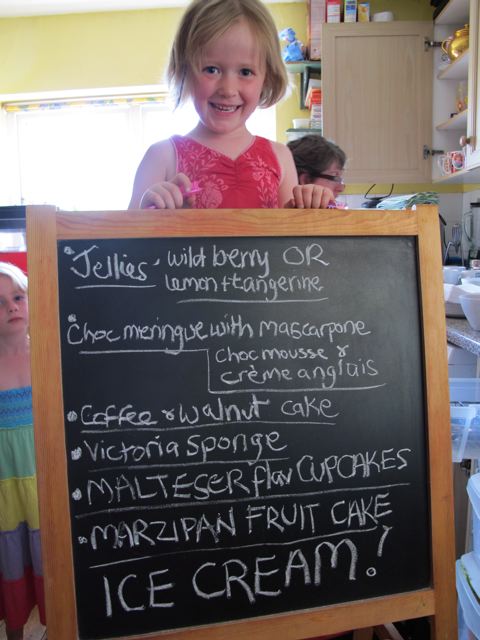 Jellies - wild berry OR
lemon + tangerine
Choc meringue with mascarpone
Choc mousse &
crème anglais
Coffee & walnut cake
Victoria sponge
MALTESER flav CUPCAKES
MARZIPAN FRUIT CAKE
ICE CREAM!